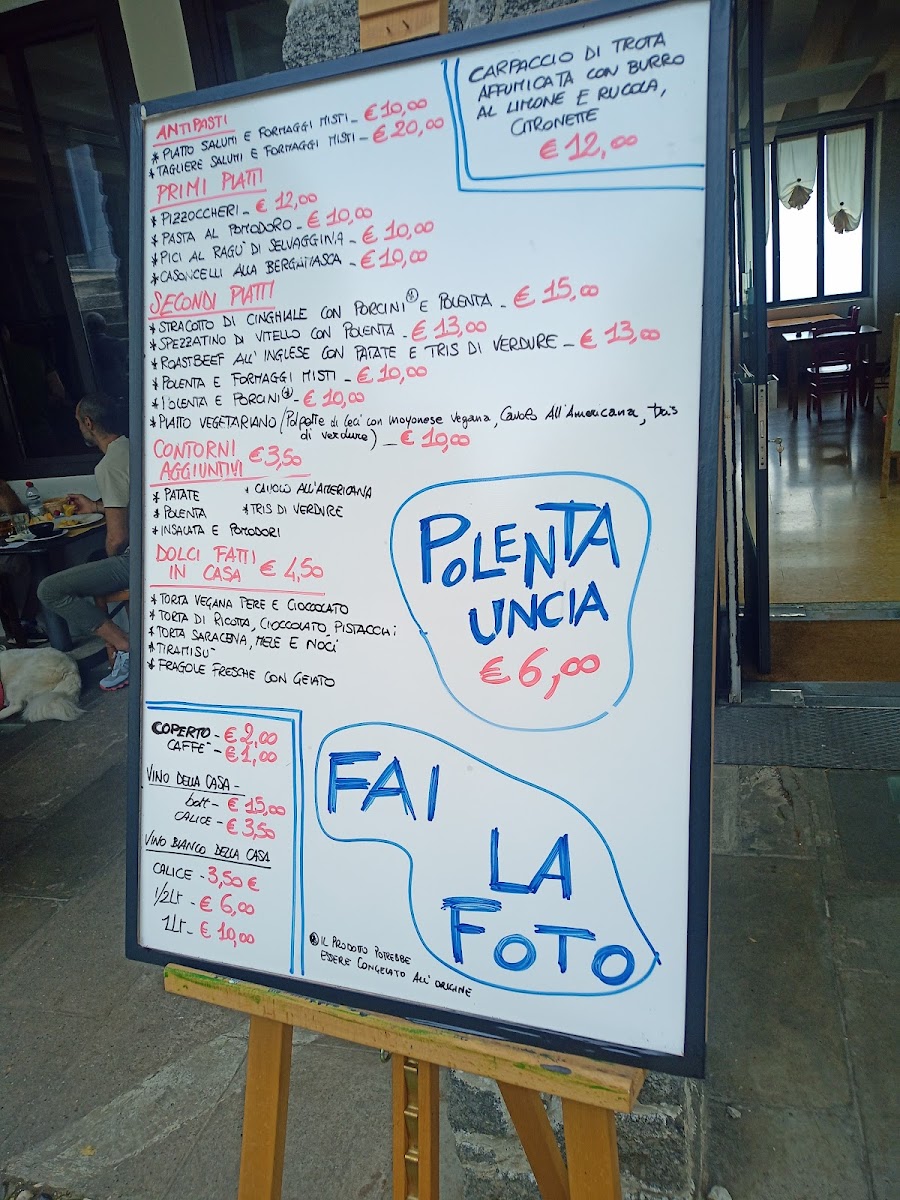 ANTIPASTI
* PIATTO SALUMI E FORMAGGI MISTI - € 10,00
* TAGLIERE SALUMI E FORMAGGI MISTI - € 20,00
CARPACCIO DI TROTA
AFFUMICATA CON BURRO
AL LIMONE E RUCOLA,
CITRONETTE
€ 12,00
PRIMI PIATTI
* PIZZOCCHERI - € 12,00
* PASTA AL POMODORO - € 10,00
* PICI AL RAGU' DI SELVAGGINA - € 10,00
* CASONCELLI ALLA BERGAMASCA - € 10,00
SECONDI PIATTI
* STRACOTTO DI CINGHIALE CON PORCINI* E POLENTA - € 15,00
* SPEZZATINO DI VITELLO CON POLENTA - € 13,00
* ROASTBEEF ALL'INGLESE CON PATATE E TRIS DI VERDURE - € 13,00
* POLENTA E FORMAGGI MISTI - € 10,00
* POLENTA E PORCINI* - € 10,00
* PIATTO VEGETARIANO (Polpette di Ceci con mayonese Vegana, Cavolo All'Americana, tris
di verdure) - € 10,00
CONTORNI
AGGIUNTIVI € 3,50
* PATATE * CAVOLO ALL'AMERICANA
* POLENTA * TRIS DI VERDURE
* INSALATA E POMODORI
DOLCI FATTI
IN CASA € 4,50
* TORTA VEGANA PERE E CIOCCOLATO
* TORTA DI RICOTTA, CIOCCOLATO, PISTACCHI
* TORTA SARACENA, MELE E NOCI
* TIRAMISU'
* FRAGOLE FRESCHE CON GELATO
POLENTA
UNCIA
€ 6,00
COPERTO - € 2,00
CAFFE' - € 1,00
VINO DELLA CASA -
bott - € 15,00
CALICE - € 3,50
VINO BIANCO DELLA CASA
CALICE - 3,50 €
1/2Lt - € 6,00
1Lt - € 10,00
FAI
LA
FOTO
* IL PRODOTTO POTREBBE
ESSERE CONGELATO ALL'ORIGINE